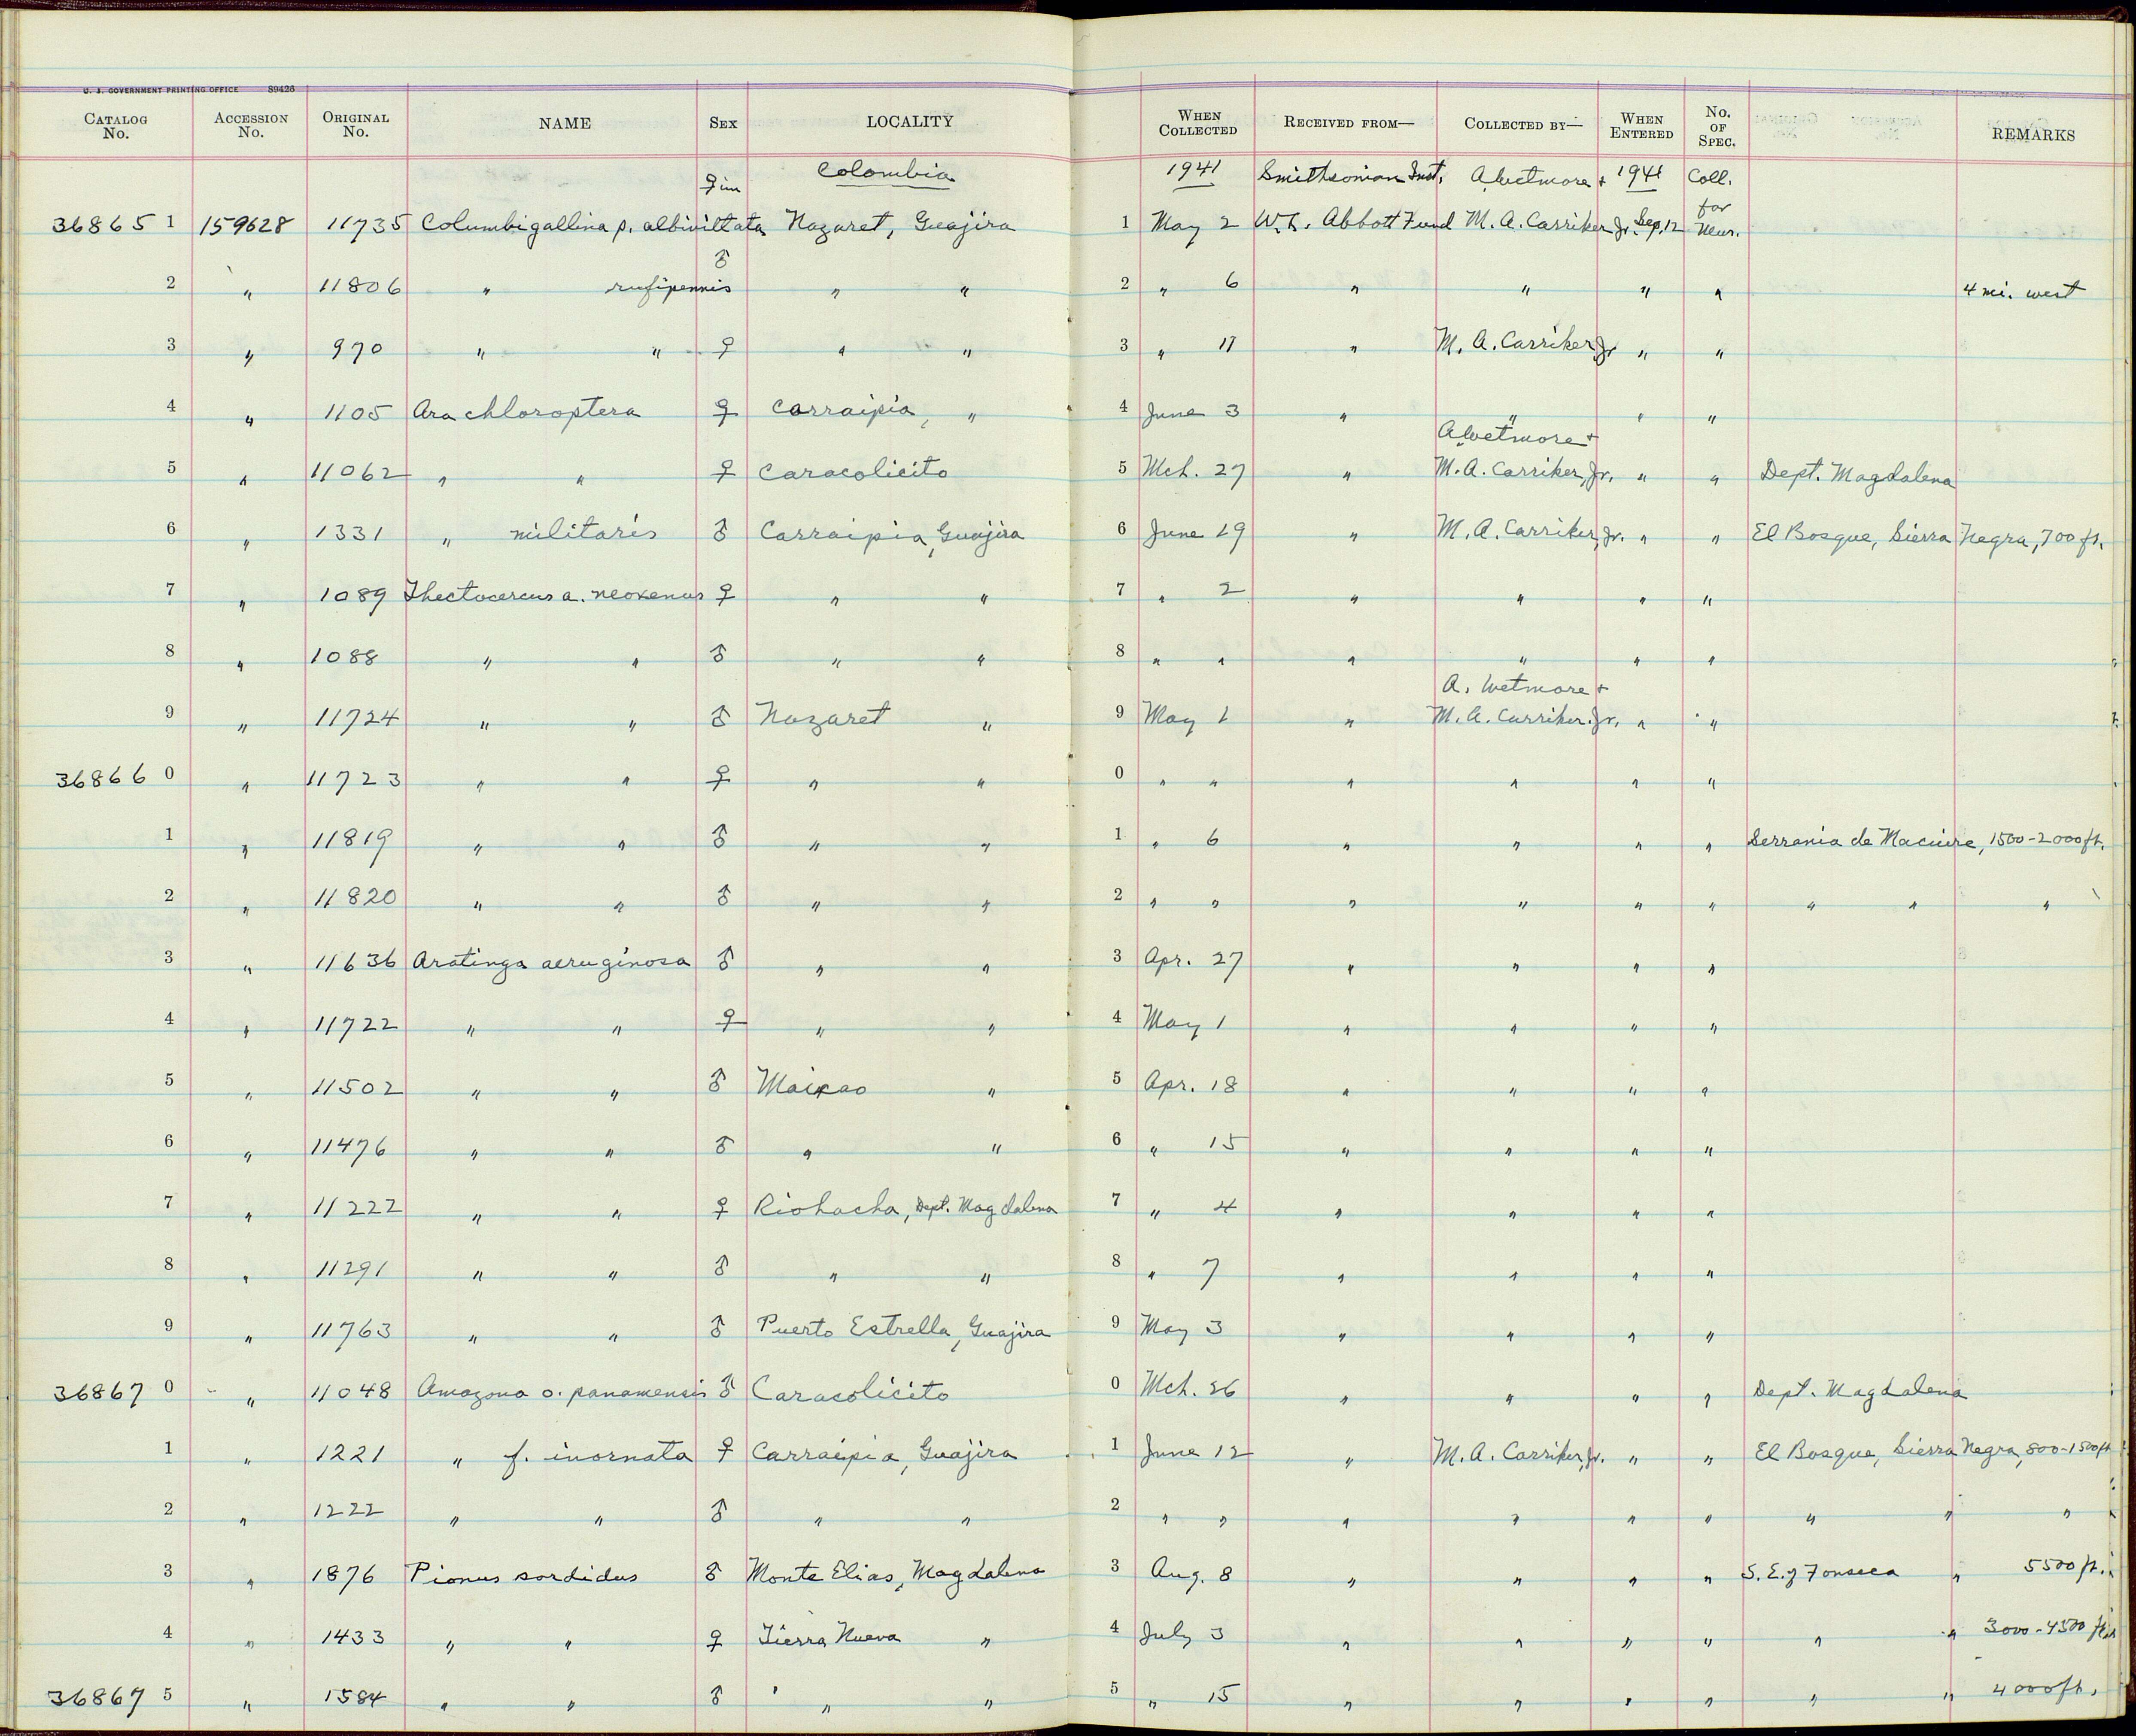 U. S. GOVERNMENT PRINTING OFFICE 89426
CATALOG No. ACCESSION No. ORIGINAL No. NAME SEX LOCALITY WHEN COLLECTED RECEIVED FROM— COLLECTED BY— WHEN ENTERED No. OF SPEC. REMARKS
♀ im Colombia 1941 Smithsonian Inst. A Wetmore + 1941 Coll. for
36865 1 159628 11735 Columbigallina p. albivittata Nazaret, Guajira 1 May 2 W. L. Abbott Fund M. A. Carriker Jr. Sep. 12 Mus.
2 " 11806 " rufipennis ♂ " " 2 " 6 " " " " 4 mi. west
3 " 970 " " ♀ " " 3 " 11 " M. A. Carriker Jr " "
4 " 1105 Ara chloroptera ♀ Carraipia, " 4 June 3 " " " "
A Wetmore +
5 " 11062 " " ♀ Caracolicito 5 Mch. 27 " M. A. Carriker, Jr. " " Dept. Magdalena
6 " 1331 " militaris ♂ Carraipia, Guajira 6 June 19 " M. A. Carriker, Jr. " " El Bosque, Sierra Negra, 700 ft.
7 " 1089 Thectocercus a. neoxenus ♀ " " 7 " 2 " " " "
8 " 1088 " " ♂ " " 8 " " " " " "
A. Wetmore +
9 " 11724 " " ♂ Nazaret " 9 May 1 " M. A. Carriker. Jr. " "
36866 0 " 11723 " " ♀ " " 0 " " " " " "
1 " 11819 " " ♂ " " 1 " 6 " " " " Serrania de Macuire, 1500-2000 ft.
2 " 11820 " " ♂ " " 2 " " " " " " " " "
3 " 11636 Aratinga aeruginosa ♂ " " 3 Apr. 27 " " " "
4 " 11722 " " ♀ " " 4 May 1 " " " "
5 " 11502 " " ♂ Maicao " 5 Apr. 18 " " " "
6 " 11476 " " ♂ " " 6 " 15 " " " "
7 " 11222 " " ♀ Riohacha, Dept. Magdalena 7 " 4 " " " "
8 " 11291 " " ♂ " " 8 " 7 " " " "
9 " 11763 " " ♂ Puerto Estrella, Guajira 9 May 3 " " " "
36867 0 " 11048 Amazona o. panamensis ♂ Caracolicito 0 Mch. 26 " " " " Dept. Magdalena
1 " 1221 " f. inornata ♀ Carraipia, Guajira 1 June 12 " M. A. Carriker, Jr. " " El Bosque, Sierra Negra, 800-1500 ft
2 " 1222 " " ♂ " " 2 " " " " " " " " "
3 " 1876 Pionus sordidus ♂ Monte Elias, Magdalena 3 Aug. 8 " " " " S. E. of Fonseca " 5500 ft.
4 " 1433 " " ♀ Tierra Nueva " 4 July 3 " " " " " " 3000-4500 ft.
36867 5 " 1584 " " ♂ " " 5 " 15 " " " " " " 4000 ft.